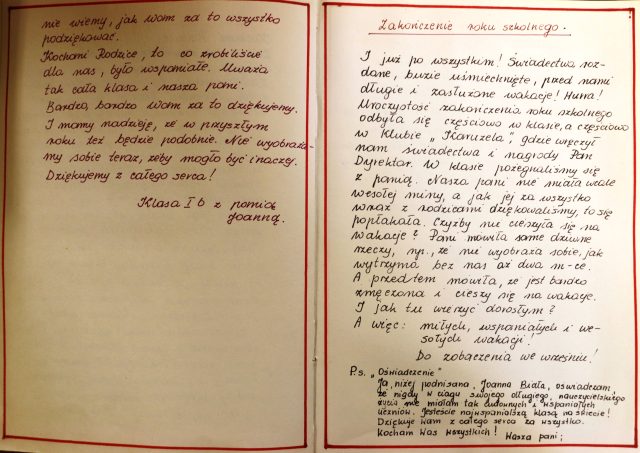 nie wiemy, jak Wam za to wszystko
podziękować.
Kochani Rodzice, to co zrobiliście
dla nas, było wspaniałe. Uważa
tak cała klasa i nasza pani.
Bardzo, bardzo Wam za to dziękujemy.
I mamy nadzieję, że w przyszłym
roku też będzie podobnie. Nie wyobraża-
my sobie teraz, żeby mogło być inaczej.
Dziękujemy z całego serca!
Klasa I b z panią
Joanną.
Zakończenie roku szkolnego.
I już po wszystkim! Świadectwa roz-
dane, buzie uśmiechnięte, przed nami
długie i zasłużone wakacje! Hurra!
Uroczystość zakończenia roku szkolnego
odbyła się częściowo w klasie, a częściowo
w Klubie „Karuzela", gdzie wręczył
nam świadectwa i nagrody Pan
Dyrektor. W klasie pożegnaliśmy się
z panią. Nasza pani nie miała wcale
wesołej miny, a jak jej za wszystko
wraz z rodzicami dziękowaliśmy, to się
popłakała. Czyżby nie cieszyła się na
wakacje? Pani mówiła same dziwne
rzeczy, np., że nie wyobraża sobie, jak
wytrzyma bez nas aż dwa m-ce.
A przedtem mówiła, że jest bardzo
zmęczona i cieszy się na wakacje.
I jak tu wierzyć dorosłym?
A więc: miłych, wspaniałych i we-
sołych wakacji!
Do zobaczenia we wrześniu!
P.s. „Oświadczenie"
Ja, niżej podpisana, Joanna Biała, oświadczam,
że nigdy w ciągu swojego długiego, nauczycielskiego
życia nie miałam tak cudownych i wspaniałych
uczniów. Jesteście najwspanialszą klasą na świecie!
Dziękuję Wam z całego serca za wszystko.
Kocham Was wszystkich! Wasza pani;